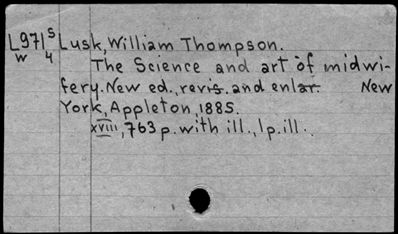 L971 S Lusk, William Thompson.
w 4 The Science and art of midwi-
fery. New ed., revis. and enlar. New
York, Appleton, 1885.
xviii, 763 p. with ill., 1 p. ill.